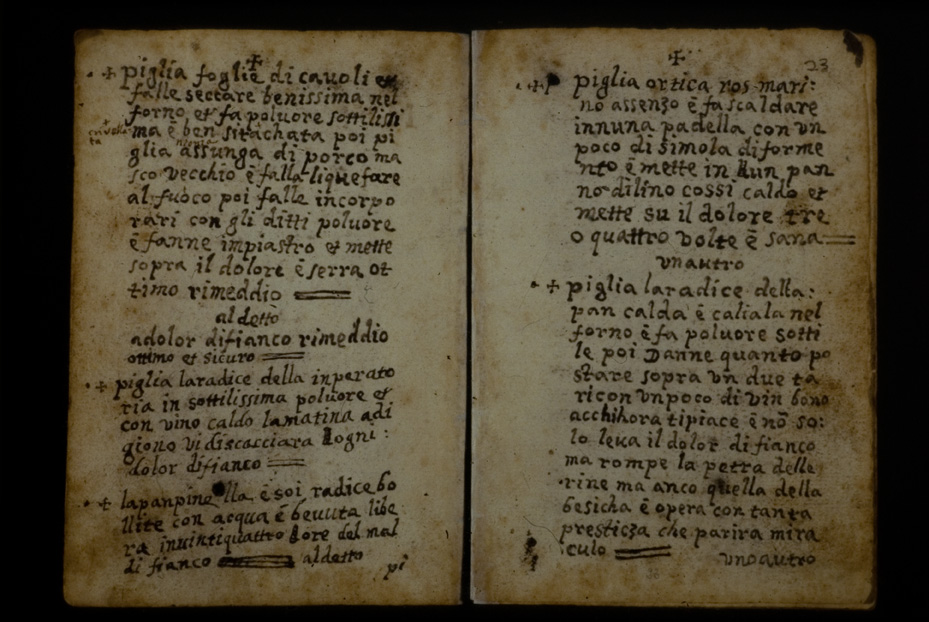 ✢
✢ piglia foglie di cauoli et
falle seccare benissima nel
forno et fa poluore sottilissi
ma ē ben sitachata poi pi
glia assunga di porco ma
sco vecchio ē falla liquefare
al fuoco poi falle incorpo
rari con gli ditti poluore
ē fanne impiastro et mette
sopra il dolore ē serra ot
timo rimeddio
al detto
adolor difianco rimeddio
ottimo et sicuro
✢ piglia laradice della inperato
ria in sottilissima poluore et
con vino caldo lamatina adi
giono vi discacciara logni :
dolor difianco
✢ lapanpinella ē soi radice bo
llite con acqua ē beuuta libe
ra inuintiquattro hore del mal
di fianco aldetto
pi
✢
23
✢ piglia ortica ros mari:
no assenzo ē fa scaldare
innuna padella con vn
poco di simola diforme
nto ē mette in hun pan
no dilino cossi caldo et
mette su il dolore tre
o quattro volte ē sana
vnautro
✢ piglia laradice della:
pan calda ē caliala nel
forno ē fa poluore sotti
le poi Danne quanto po
stare sopra vn due ta
ri con vnpoco di vin bono
acchihora tipiace ē nō so:
lo leua il dolor difianco
ma rompe la petra delle
rine ma anco quella della
besicha ē opera con tanta
presticza che parira mira
culo
vnoautro